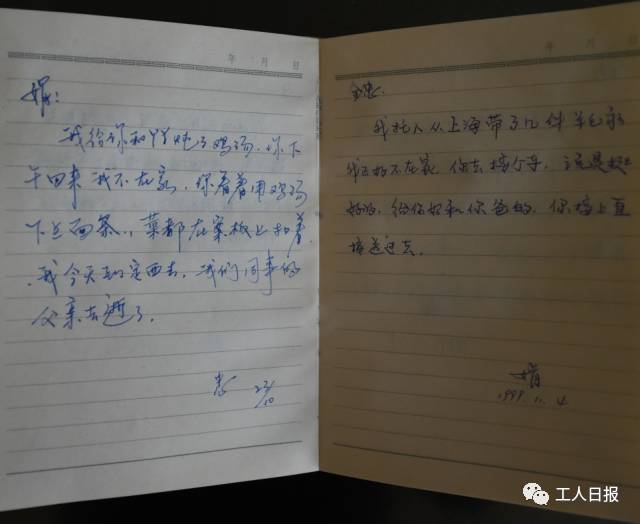 年 月 日
娟:
我给你和丫丫炖了鸡汤,你下
午回来我不在家,你看着用鸡汤
下点面条,菜都在案板上扣着
.我今天到定西去,我们同事的
父亲去逝了.
忠 23/10
年 月 日
我托人从上海带了几件羊毛衫
我正好不在家,你去接个手,
好的,给你妈和你爸的,你接上直
接送过去.
娟
1999.11.4
工人日报